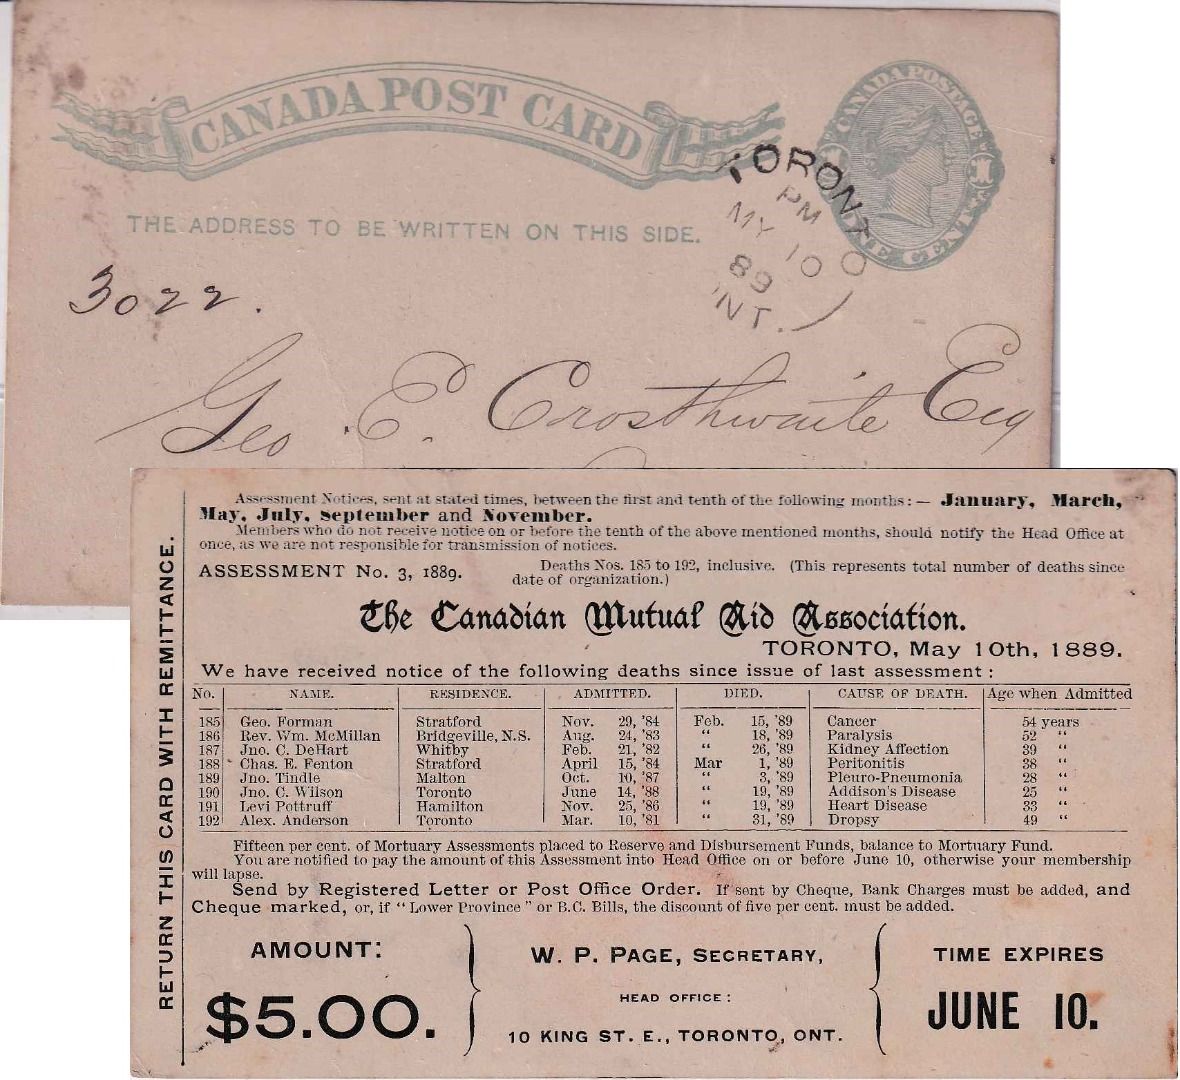 CANADA POST CARD
CANADA POSTAGE
1 1
ONE CENT
THE ADDRESS TO BE WRITTEN ON THIS SIDE.
TORONTO
PM
MY 10
89
ONT.
3022.
Geo. E. Crosthwaite Esq
RETURN THIS CARD WITH REMITTANCE.
Assessment Notices, sent at stated times, between the first and tenth of the following months:— January, March,
May, July, September and November.
Members who do not receive notice on or before the tenth of the above mentioned months, should notify the Head Office at
once, as we are not responsible for transmission of notices.
ASSESSMENT No. 3, 1889. Deaths Nos. 185 to 192, inclusive. (This represents total number of deaths since
date of organization.)
The Canadian Mutual Aid Association.
TORONTO, May 10th, 1889.
We have received notice of the following deaths since issue of last assessment:
No. NAME. RESIDENCE. ADMITTED. DIED. CAUSE OF DEATH. Age when Admitted
185 Geo. Forman Stratford Nov. 29, '84 Feb. 15, '89 Cancer 54 years
186 Rev. Wm. McMillan Bridgeville, N.S. Aug. 24, '83 “ 18, '89 Paralysis 52 “
187 Jno. C. DeHart Whitby Feb. 21, '82 “ 26, '89 Kidney Affection 39 “
188 Chas. E. Fenton Stratford April 15, '84 Mar 1, '89 Peritonitis 38 “
189 Jno. Tindle Malton Oct. 10, '87 “ 3, '89 Pleuro-Pneumonia 28 “
190 Jno. C. Wilson Toronto June 14, '88 “ 19, '89 Addison's Disease 25 “
191 Levi Pottruff Hamilton Nov. 25, '86 “ 19, '89 Heart Disease 33 “
192 Alex. Anderson Toronto Mar. 10, '81 “ 31, '89 Dropsy 49 “
Fifteen per cent. of Mortuary Assessments placed to Reserve and Disbursement Funds, balance to Mortuary Fund.
You are notified to pay the amount of this Assessment into Head Office on or before June 10, otherwise your membership
will lapse.
Send by Registered Letter or Post Office Order. If sent by Cheque, Bank Charges must be added, and
Cheque marked, or, if “Lower Province” or B.C. Bills, the discount of five per cent. must be added.
AMOUNT:
$5.00.
W. P. PAGE, SECRETARY,
HEAD OFFICE:
10 KING ST. E., TORONTO, ONT.
TIME EXPIRES
JUNE 10.